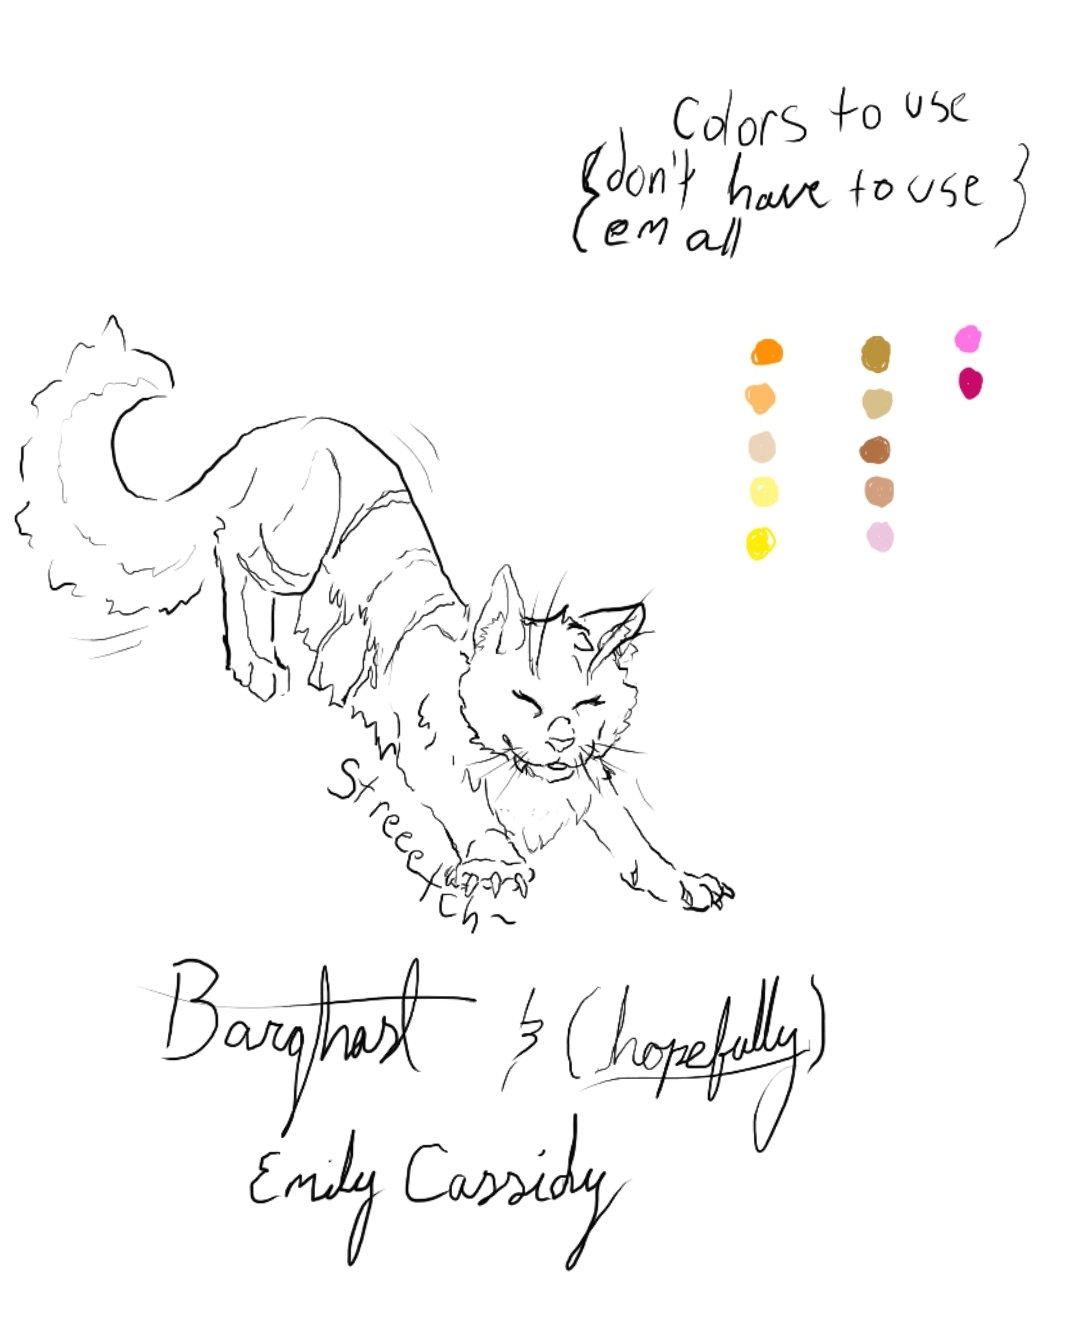 Colors to use
{don't have to use}
{em all
Streeetch~
Barghast & (hopefully)
Emily Cassidy